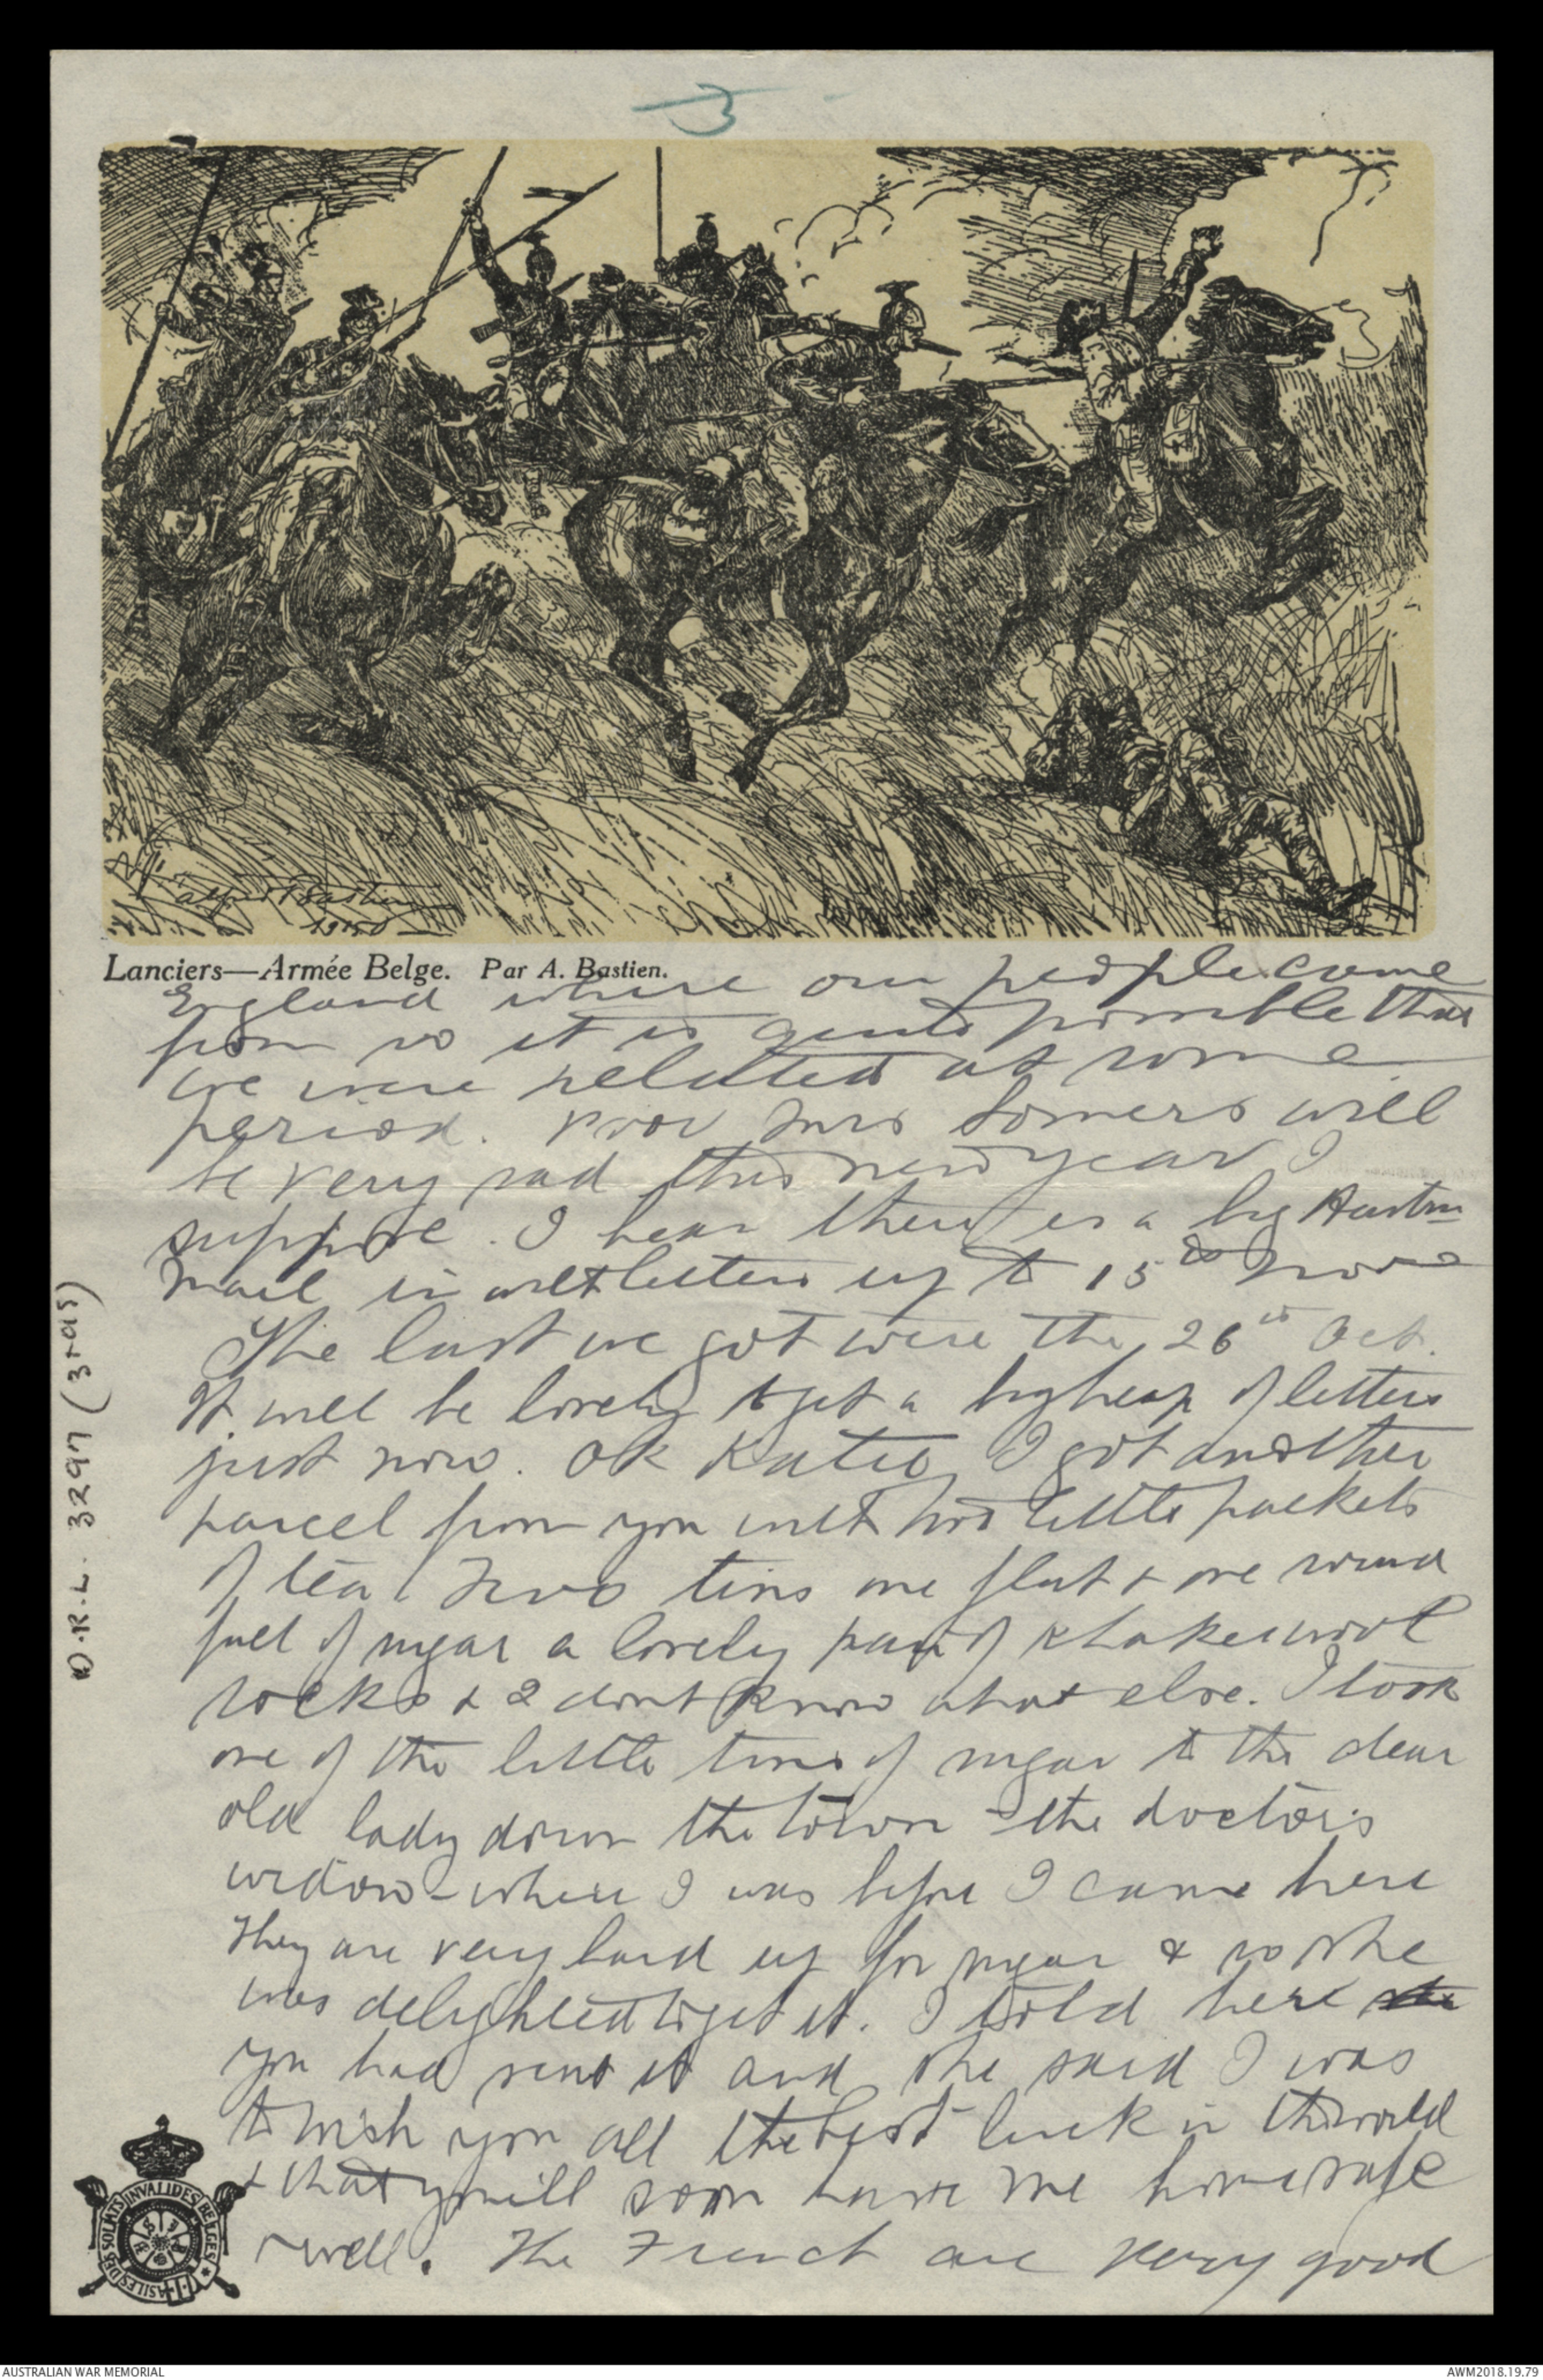 3
Alfred Bastien
Lanciers—Armée Belge. Par A. Bastien.
England where our people came
from so it is quite possible that
we were related at some
period. Poor Mrs Somers will
be very sad this new year I
suppose. I hear there is a big Austrn
Mail in with letters up to 15th Nov
The last we got were the 26th Oct.
It will be lovely to get a big heap of letters
just now. Oh Katie I got another
parcel from you with two little packets
of tea Two tins one flat & one round
full of sugar a lovely pair of khakei wool
socks & I dont know what else. I took
one of the little tins of sugar to the dear
old lady down the town - the doctor's
widow - where I was before I came here
They are very hard up for sugar & so she
was delighted to get it. I told here
you had sent it and she said I was
to wish you all the best luck in the world
& that you will soon have me home safe
& well. The French are very good
O.R.L. 3297 (3rd 915)
ASILES DES SOLDATS INVALIDES BELGES
AUSTRALIAN WAR MEMORIAL
AWM2018.19.79